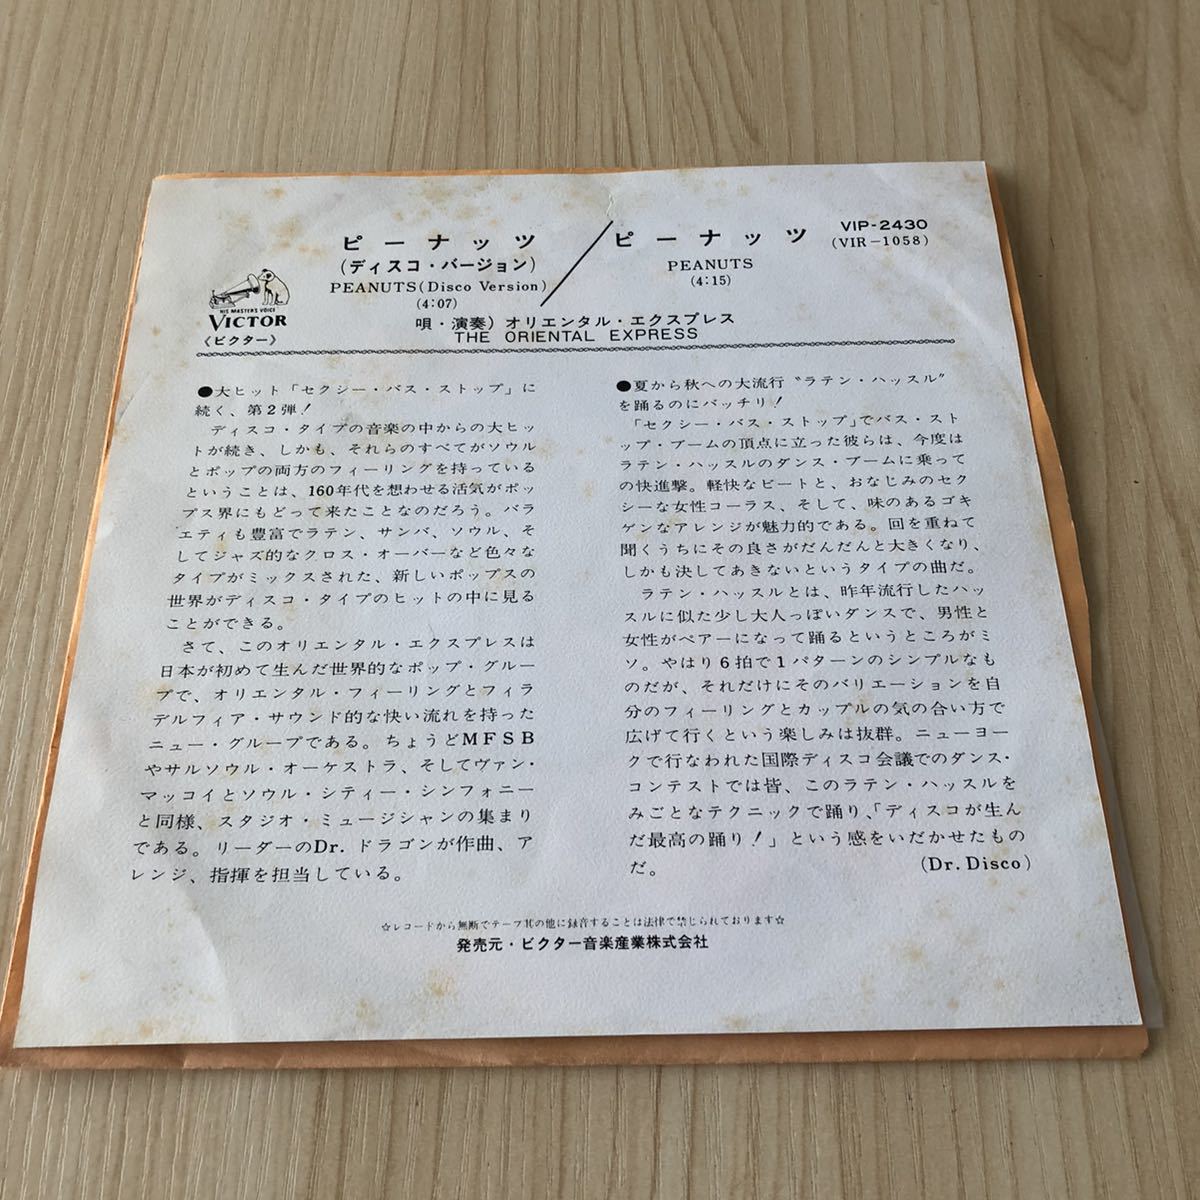 ピーナッツ
(ディスコ・バージョン)
PEANUTS(Disco Version)
(4:07)
ピーナッツ
PEANUTS
(4:15)
VIP-2430
(VIR-1058)
HIS MASTER'S VOICE
VICTOR
《ビクター》
唄・演奏)オリエンタル・エクスプレス
THE ORIENTAL EXPRESS
●大ヒット「セクシー・バス・ストップ」に
続く、第2弾!
ディスコ・タイプの音楽の中からの大ヒッ
トが続き、しかも、それらのすべてがソウル
とポップの両方のフィーリングを持っている
ということは、160年代を想わせる活気がポッ
プス界にもどって来たことなのだろう。バラ
エティも豊富でラテン、サンバ、ソウル、そ
してジャズ的なクロス・オーバーなど色々な
タイプがミックスされた、新しいポップスの
世界がディスコ・タイプのヒットの中に見る
ことができる。
さて、このオリエンタル・エクスプレスは
日本が初めて生んだ世界的なポップ・グルー
プで、オリエンタル・フィーリングとフィラ
デルフィア・サウンド的な快い流れを持った
ニュー・グループである。ちょうどMFSB
やサルソウル・オーケストラ、そしてヴァン・
マッコイとソウル・シティー・シンフォニー
と同様、スタジオ・ミュージシャンの集まり
である。リーダーのDr.ドラゴンが作曲、ア
レンジ、指揮を担当している。
●夏から秋への大流行“ラテン・ハッスル”
を踊るのにバッチリ!
「セクシー・バス・ストップ」でバス・スト
ップ・ブームの頂点に立った彼らは、今度は
ラテン・ハッスルのダンス・ブームに乗って
の快進撃。軽快なビートと、おなじみのセク
シーな女性コーラス、そして、味のあるゴキ
ゲンなアレンジが魅力的である。回を重ねて
聞くうちにその良さがだんだんと大きくなり、
しかも決してあきないというタイプの曲だ。
ラテン・ハッスルとは、昨年流行したハッ
スルに似た少し大人っぽいダンスで、男性と
女性がペアーになって踊るというところがミ
ソ。やはり6拍で1パターンのシンプルなも
のだが、それだけにそのバリエーションを自
分のフィーリングとカップルの気の合い方で
広げて行くという楽しみは抜群。ニューヨー
クで行なわれた国際ディスコ会議でのダンス・
コンテストでは皆、このラテン・ハッスルを
みごとなテクニックで踊り、「ディスコが生ん
だ最高の踊り!」という感をいだかせたもの
だ。
(Dr.Disco)
☆レコードから無断でテープ其の他に録音することは法律で禁じられております☆
発売元・ビクター音楽産業株式会社